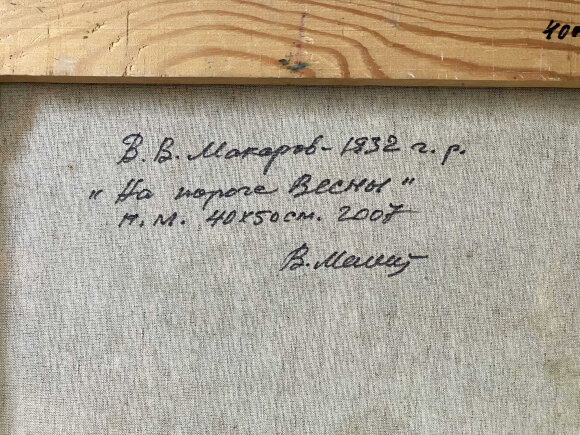 40
В. В. Макаров - 1932 г. р.
"На пороге Весны"
х. м. 40х50см. 2007
В. Мак